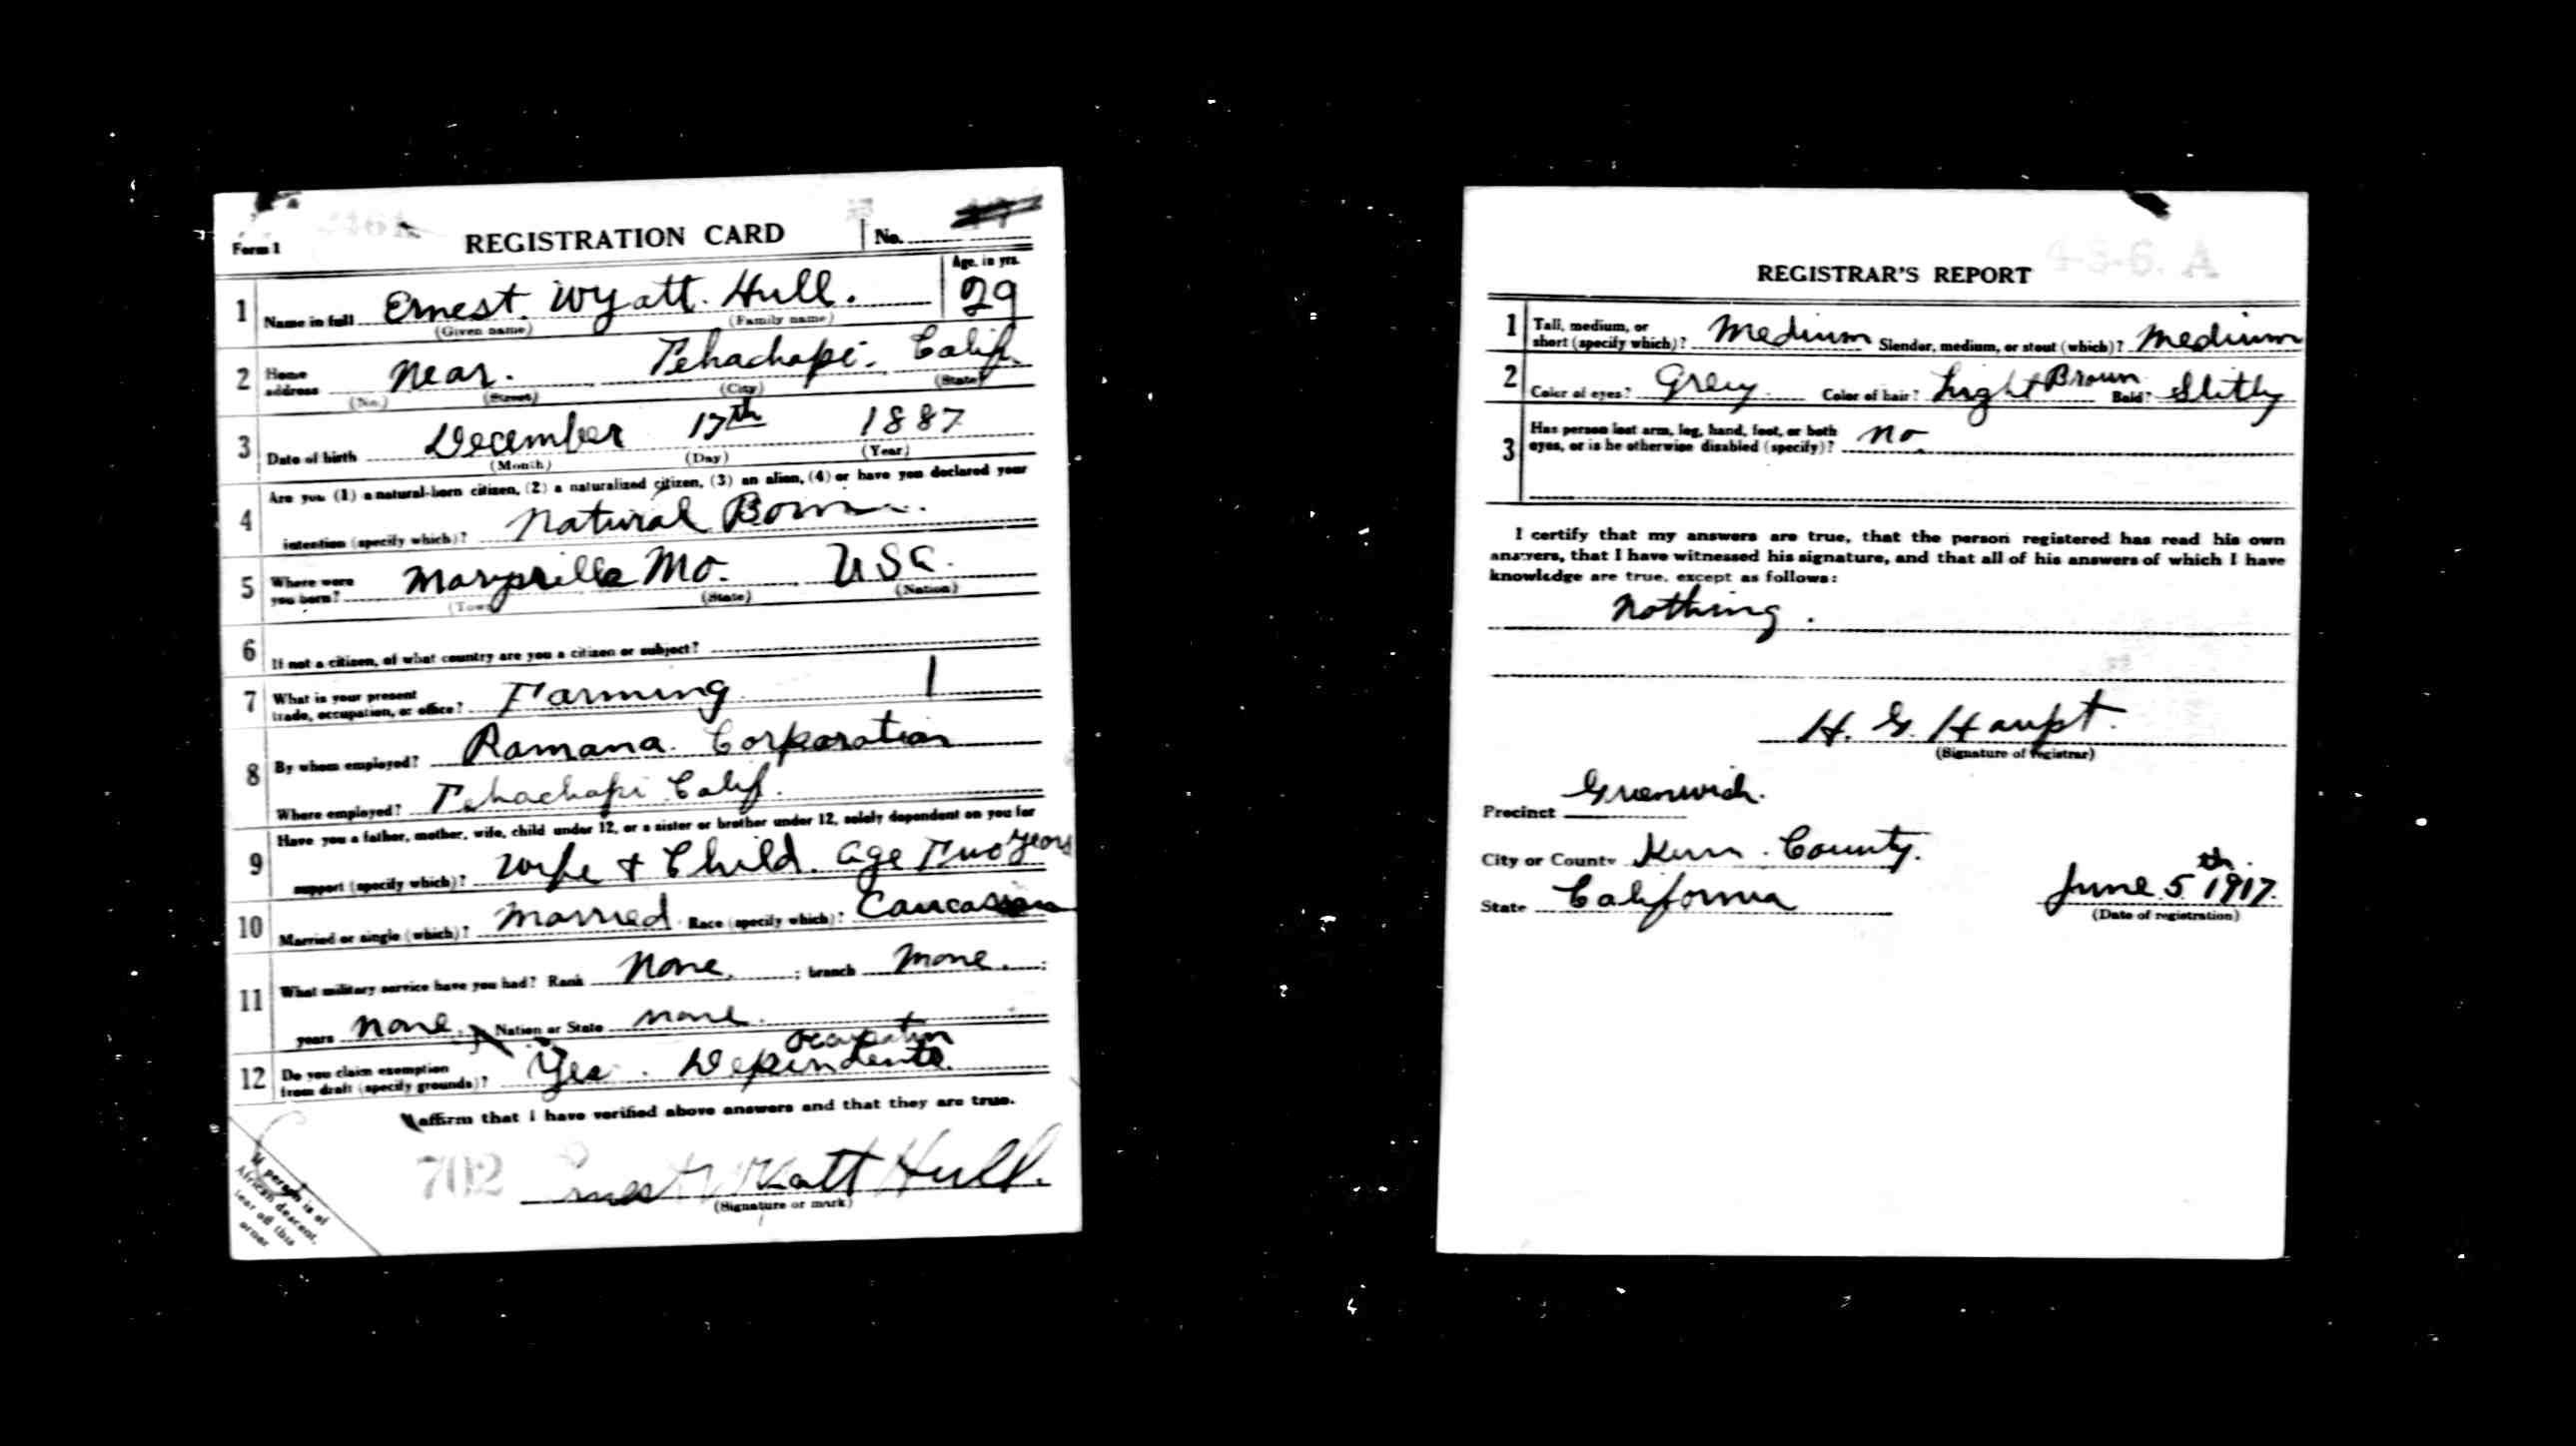 Form 1
REGISTRATION CARD No.
1 Name in full Ernest. Wyatt. Hull. Age, in yrs. 29
(Given name) (Family name)
2 Home address Near. Tehachapi. Calif.
(No.) (Street) (City) (State)
3 Date of birth December 17th 1887
(Month) (Day) (Year)
4 Are you (1) a natural-born citizen, (2) a naturalized citizen, (3) an alien, (4) or have you declared your
intention (specify which)? Natural Born
5 Where were you born? Maryville Mo. USA.
(Town) (State) (Nation)
6 If not a citizen, of what country are you a citizen or subject?
7 What is your present trade, occupation, or office? Farming 1
8 By whom employed? Ramana. Corporation
Where employed? Tehachapi Calif.
9 Have you a father, mother, wife, child under 12, or a sister or brother under 12, solely dependent on you for
support (specify which)? Wife + Child. age Two Years
10 Married or single (which)? Married Race (specify which)? Caucasian
11 What military service have you had? Rank None. ; branch None. ;
years None. Nation or State None.
occupation
12 Do you claim exemption from draft (specify grounds)? Yes. Dependents.
I affirm that I have verified above answers and that they are true.
702 Ernest Wyatt Hull.
(Signature or mark)
If person is of
African descent,
tear off this
corner
4-3-6. A
REGISTRAR'S REPORT
1 Tall, medium, or short (specify which)? Medium Slender, medium, or stout (which)? Medium
2 Color of eyes? Grey Color of hair? Light Brown Bald? Slitly
3 Has person lost arm, leg, hand, foot, or both
eyes, or is he otherwise disabled (specify)? No
I certify that my answers are true, that the person registered has read his own
answers, that I have witnessed his signature, and that all of his answers of which I have
knowledge are true, except as follows:
Nothing.
H. G. Haupt.
(Signature of registrar)
Precinct Greenwich.
City or County Kern. County.
State California June 5th 1917.
(Date of registration)